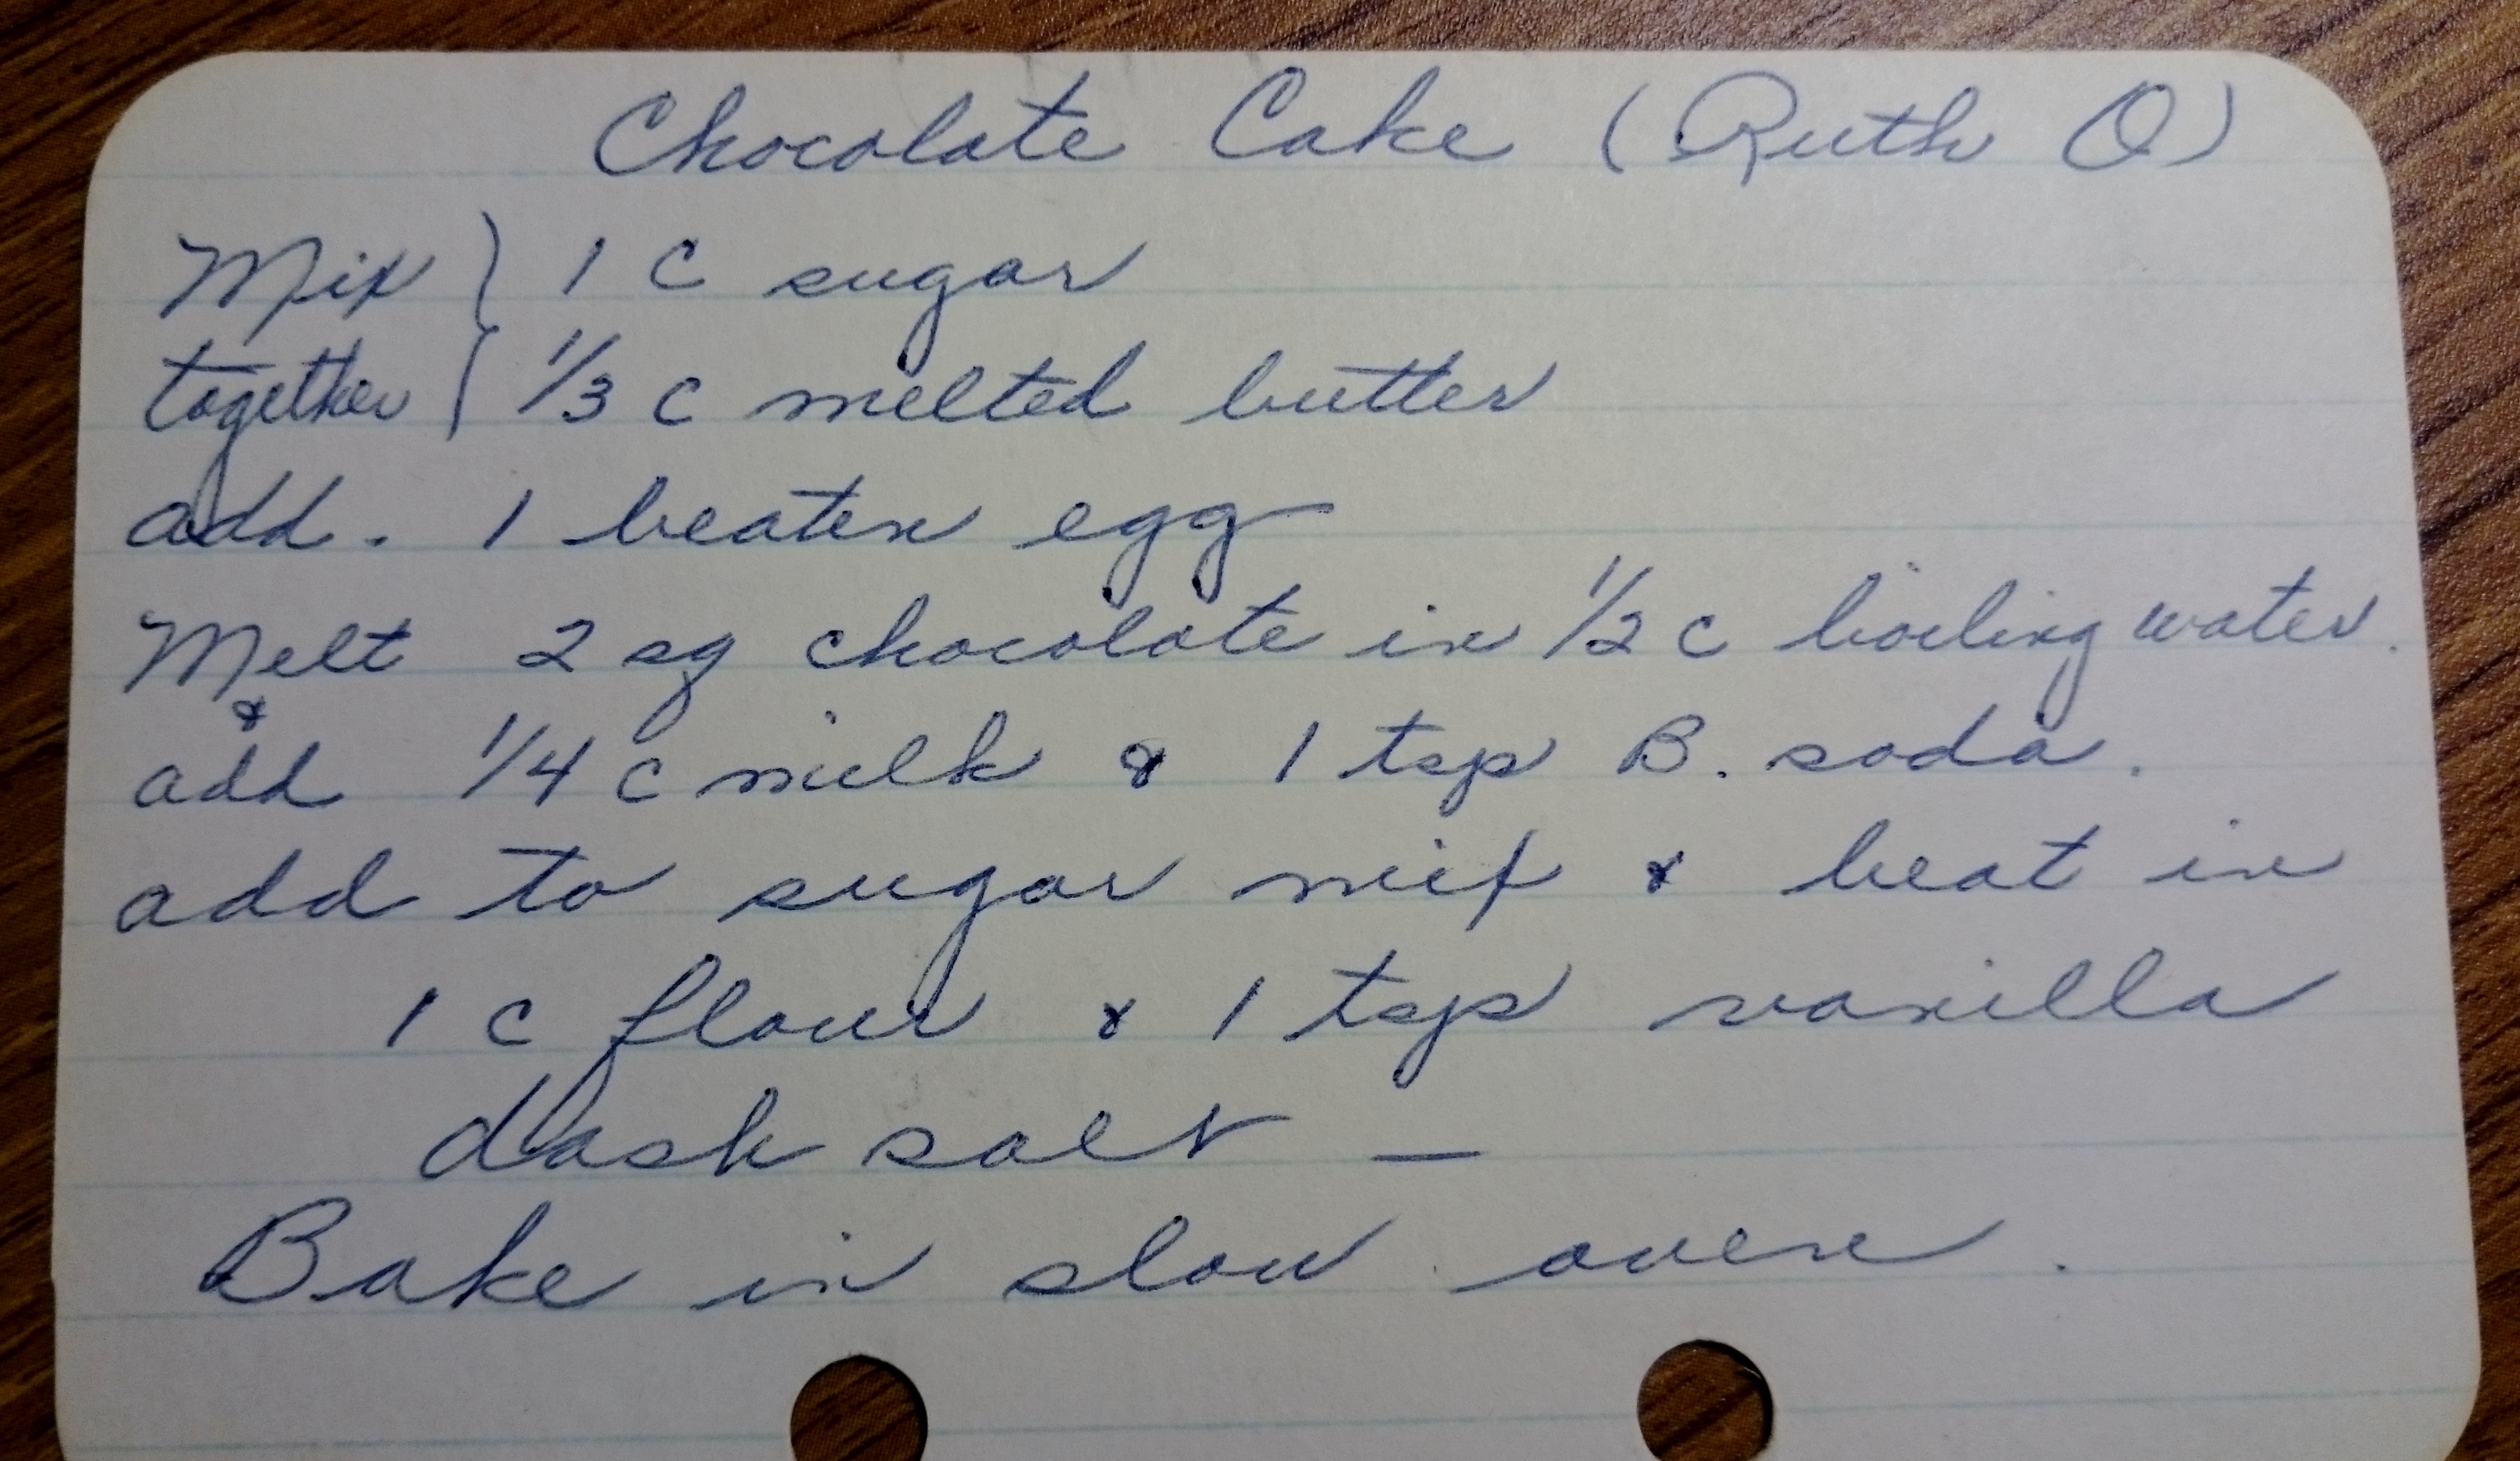 Chocolate Cake (Ruth O)
Mix } 1 c sugar
together } 1/3 c melted butter
add. 1 beaten egg
Melt 2 sq chocolate in 1/2 c boiling water.
&
add 1/4 c milk & 1 tsp B. soda.
add to sugar mix & beat in
1 c flour & 1 tsp vanilla
dash salt —
Bake in slow oven.